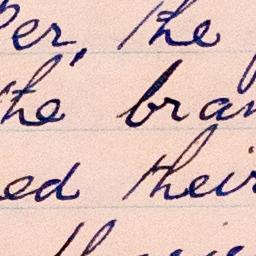 per, the
the bran
ed their